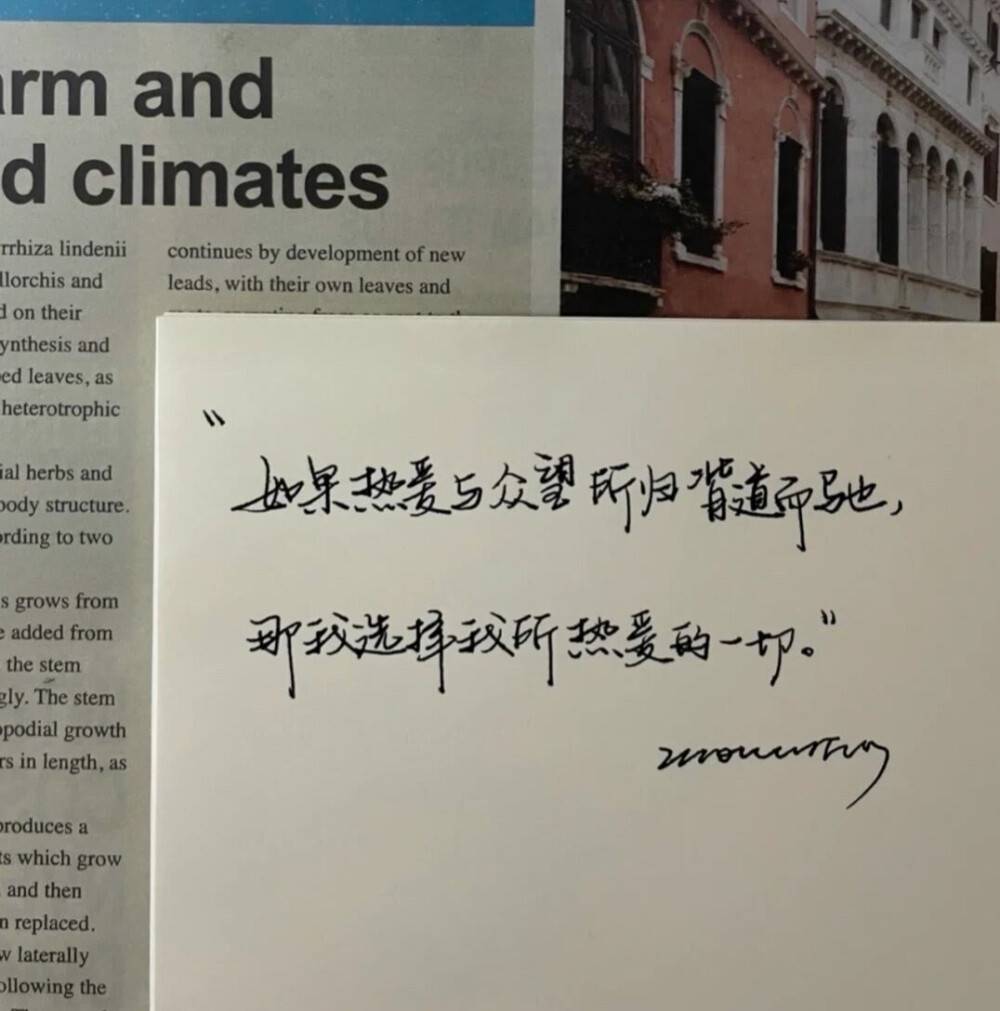 arm and
d climates
rrhiza lindenii
llorchis and
d on their
ynthesis and
ed leaves, as
heterotrophic
ial herbs and
body structure.
ording to two
s grows from
e added from
the stem
gly. The stem
opodial growth
rs in length, as
produces a
ts which grow
and then
n replaced.
w laterally
ollowing the
continues by development of new
leads, with their own leaves and
"
如果热爱与众望所归背道而驰，
那我选择我所热爱的一切。"